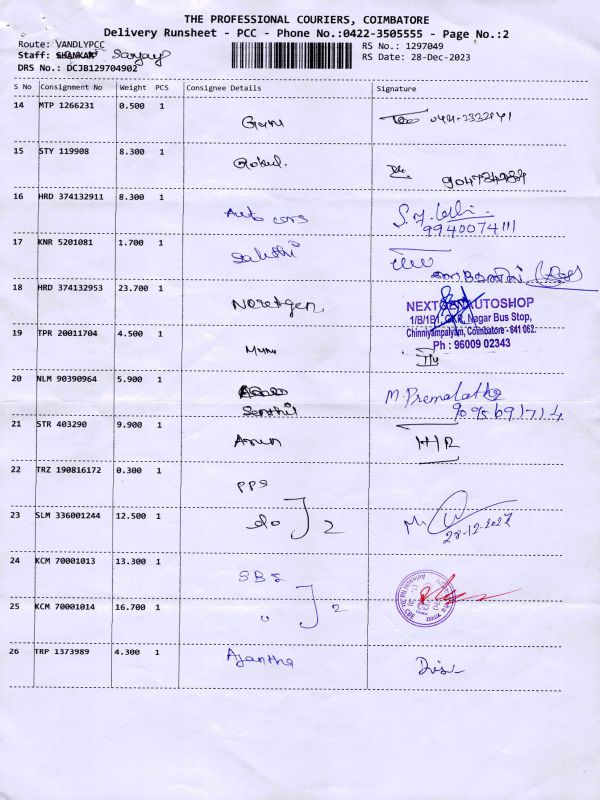 THE PROFESSIONAL COURIERS, COIMBATORE
Delivery Runsheet - PCC - Phone No.:0422-3505555 - Page No.:2
Route: VANDLYPCC
RS No.: 1297049
Staff: SHANKAR Sanjay
RS Date: 28-Dec-2023
DRS No.: DCJB129704902
S No Consignment No Weight PCS Consignee Details Signature
14 MTP 1266231 0.500 1
Guru
15 STY 119908 8.300 1
Gokul.
16 HRD 374132911 8.300 1
Auto cars
9940074111
17 KNR 5201081 1.700 1
Sakthi
18 HRD 374132953 23.700 1
Nextgen
NEXTGEN AUTOSHOP
1/B/1B1, Nagar Bus Stop,
Chinniyampalyam, Coimbatore - 641 062.
Ph : 96009 02343
19 TPR 20011704 4.500 1
20 NLM 90390964 5.900 1
M. Premalatha
Senthil
9095691714
21 STR 403290 9.900 1
Arun
22 TRZ 190816172 0.300 1
PPS
23 SLM 336001244 12.500 1
do 2
28-12-2027
24 KCM 70001013 13.300 1
SBS
25 KCM 70001014 16.700 1
" 2
26 TRP 1373989 4.300 1
Ajantha